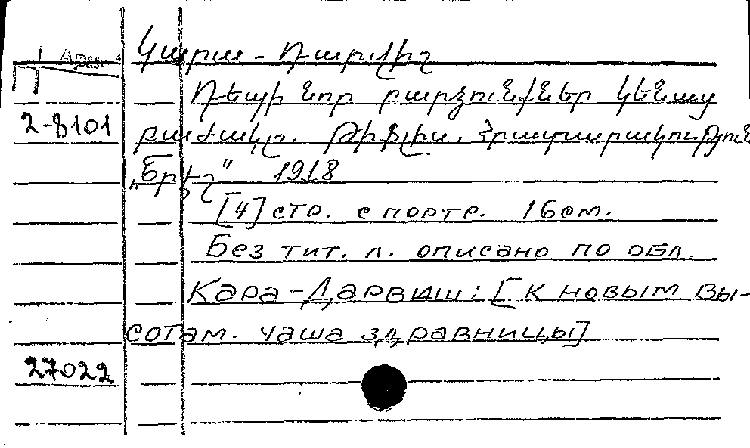 Կարա - Դարվիշ
Դեպի նոր բարձունքներ կենաց
2-8101
բաժակը. Թիֆլիս. Հրատարակություն
1918
[4] стр. с портр. 16 см.
Без тит. л. описано по обл.
Кара-Дарвиш: [К новым вы-
сотам. Чаша здравницы]
27022